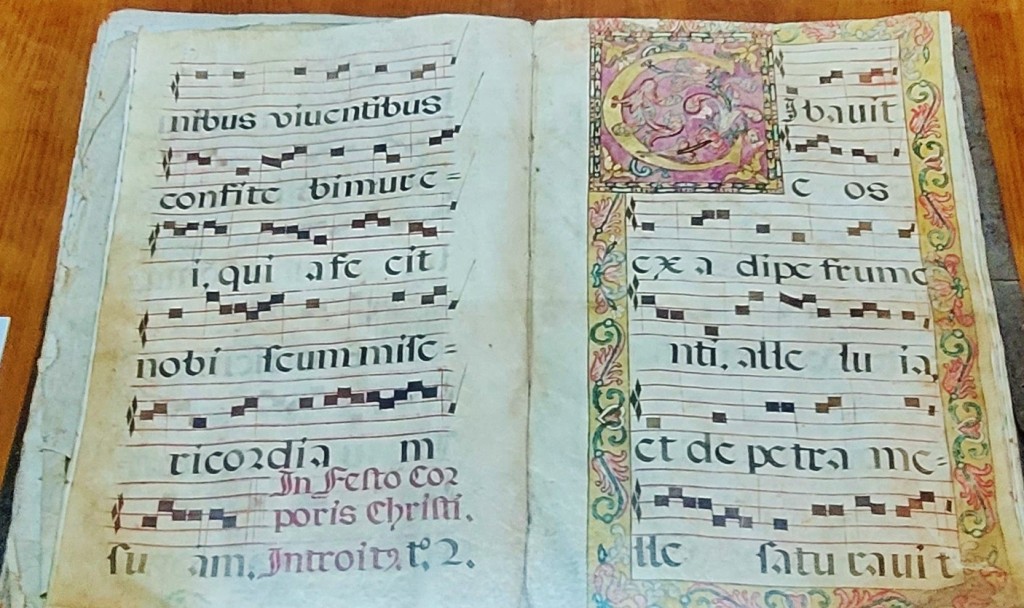 nibus viventibus
confite bimur e=
i, qui a fe cit
nobi scum mise=
ricordia m
In Festo Cor
poris Christi.
su am. Introit9 t.º 2.
Cibavit
e os
ex a dipe frume
nti, alle lu ia,
et de petra me=
lle satu ravit